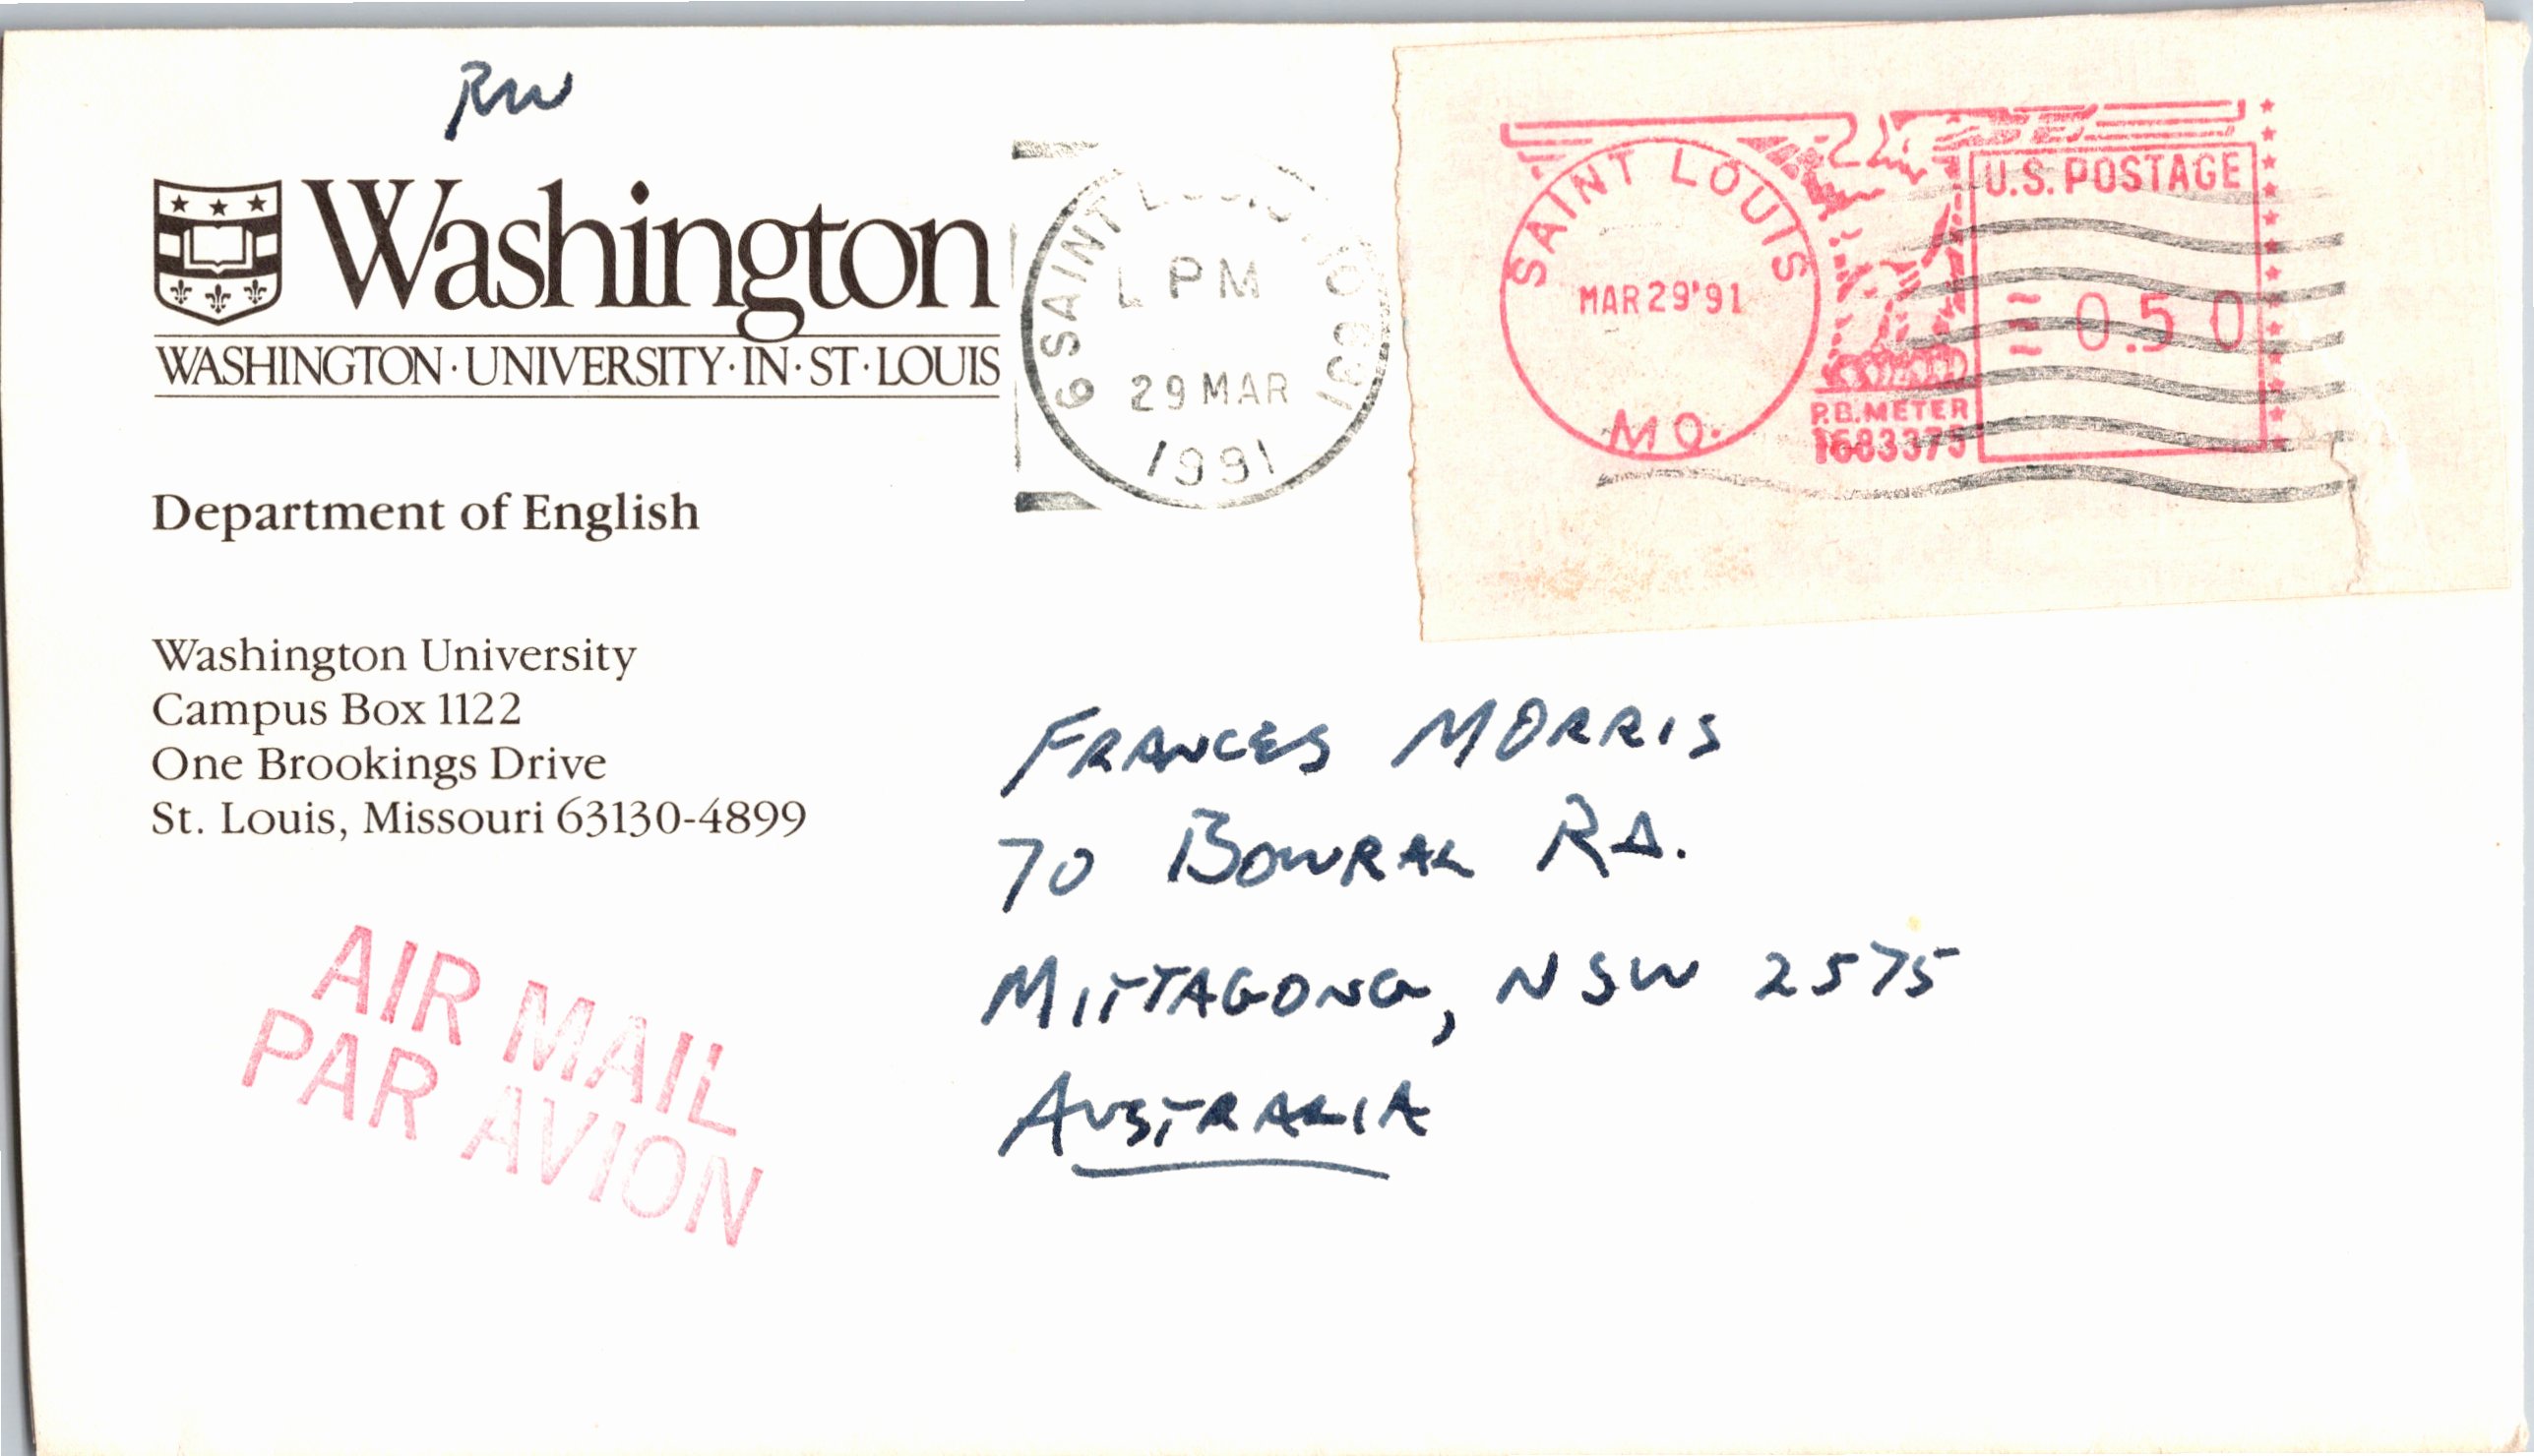 RW
Washington
WASHINGTON · UNIVERSITY · IN · ST · LOUIS
Department of English
Washington University
Campus Box 1122
One Brookings Drive
St. Louis, Missouri 63130-4899
AIR MAIL
PAR AVION
SAINT
PM
29 MAR
1991
SAINT LOUIS
MAR 29 '91
MO.
U.S. POSTAGE
0.50
P.B. METER
1683375
FRANCES MORRIS
70 BOWRAL RD.
MITTAGONG, NSW 2575
AUSTRALIA